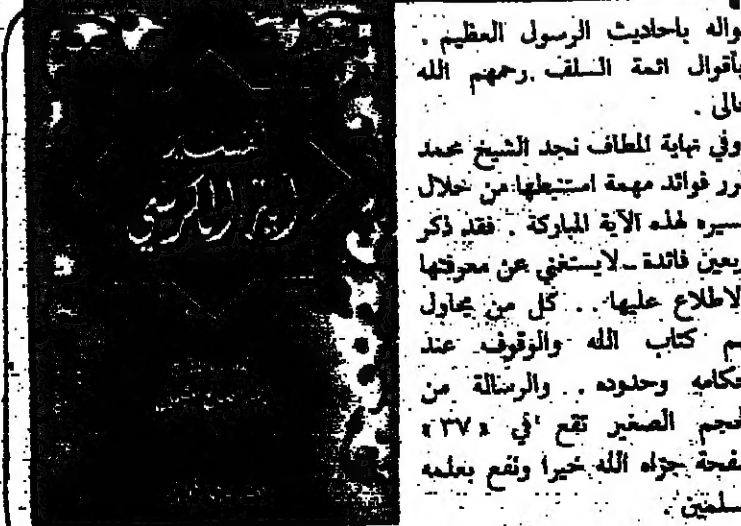 تفسير
آية الكرسي
واله باحاديث الرسول العظيم .
بأقوال ائمة السلف رحمهم الله
عالى .
وفي نهاية المطاف نجد الشيخ محمد
رر فوائد مهمة استنبطها من خلال
سيره لهذه الآية المباركة . فقد ذكر
ربعين فائدة ـ لايستغني عن معرفتها
الاطلاع عليها . . كل من يحاول
هم كتاب الله والوقوف عند
حكامه وحدوده . . والرسالة من
لحجم الصغير تقع في «٣٧»
صفحة جزاه الله خيرا ونفع بعلمه
سلمين .